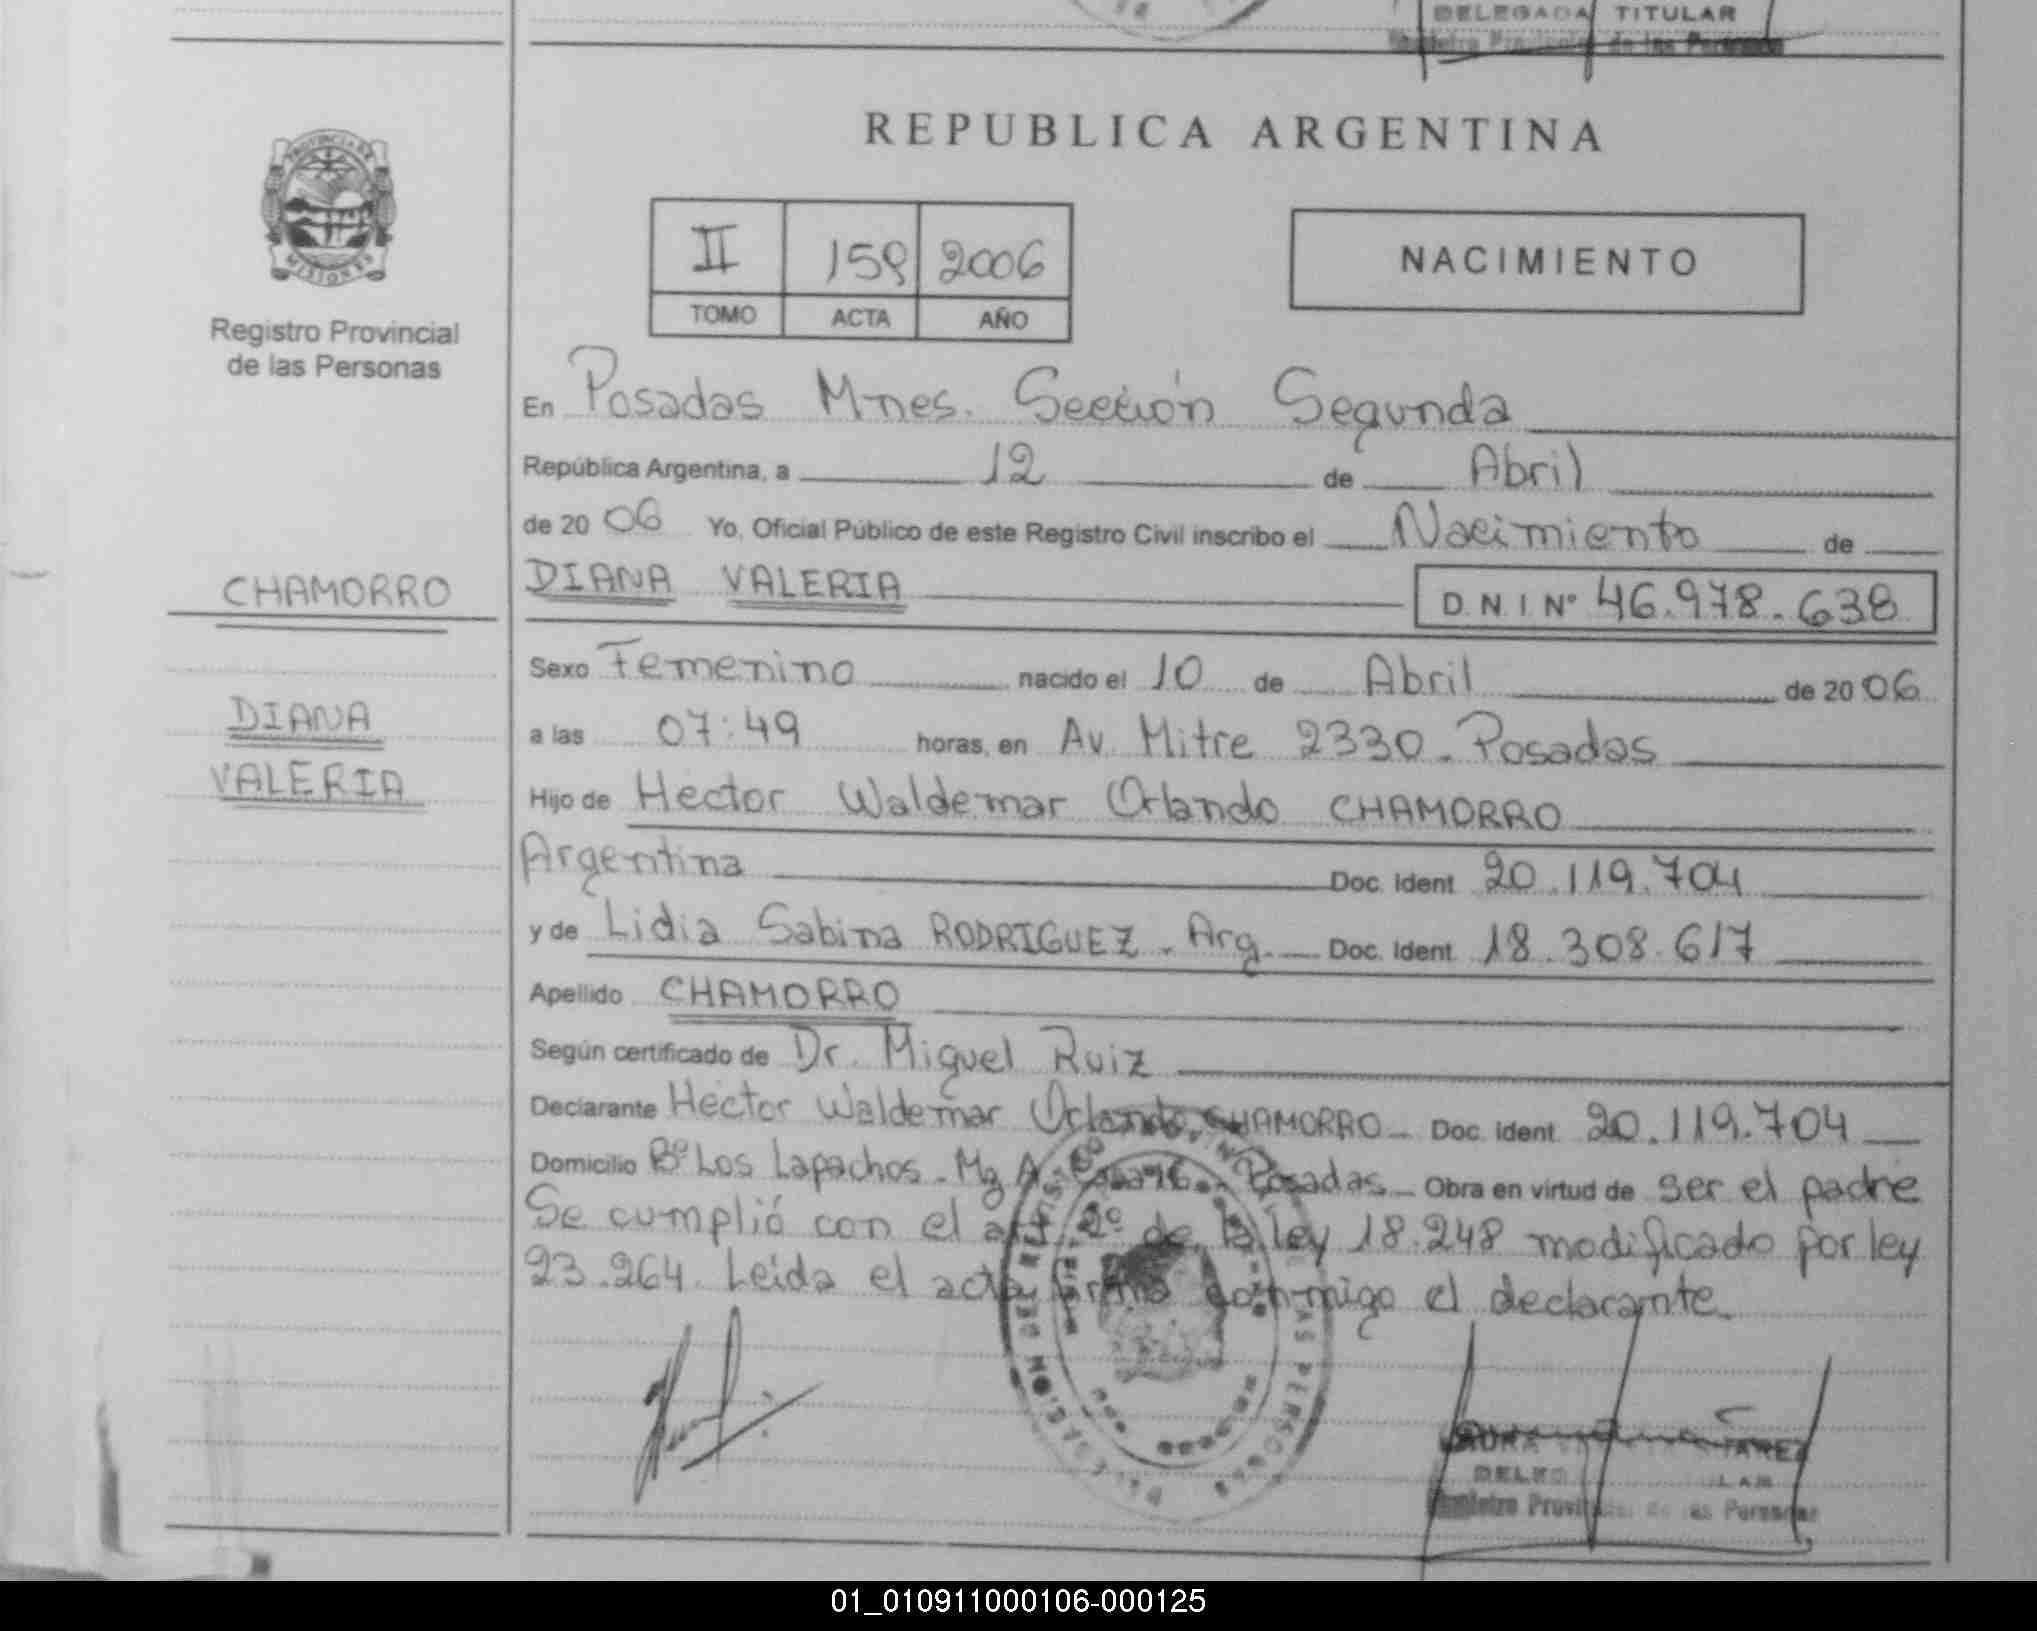 DELEGADA TITULAR
Registro Provincial de las Personas
REPUBLICA ARGENTINA
PROVINCIA DE
MISIONES
Registro Provincial
de las Personas
II 159 2006
TOMO ACTA AÑO
NACIMIENTO
En Posadas Mnes. Sección Segunda
República Argentina, a 12 de Abril
de 20 06 Yo, Oficial Público de este Registro Civil inscribo el Nacimiento de
CHAMORRO
DIANA
VALERIA
DIANA VALERIA D.N.I. Nº 46.978.638
Sexo Femenino nacido el 10 de Abril de 20 06
a las 07:49 horas, en Av. Mitre 2330. Posadas
Hijo de Hector Waldemar Orlando CHAMORRO
Argentina Doc. Ident 20.119.704
y de Lidia Sabina RODRIGUEZ. Arg. Doc. Ident. 18.308.617
Apellido CHAMORRO
Según certificado de Dr. Miguel Ruiz
Declarante Hector Waldemar Orlando CHAMORRO Doc. ident. 20.119.704
Domicilio Bº Los Lapachos. Mz A Casa 16. Posadas Obra en virtud de ser el padre
Se cumplió con el art. 2º de la ley 18.248 modificado por ley
23.264. Leida el acta firma conmigo el declarante.
LAURA
Registro Provincial de las Personas
01_010911000106-000125